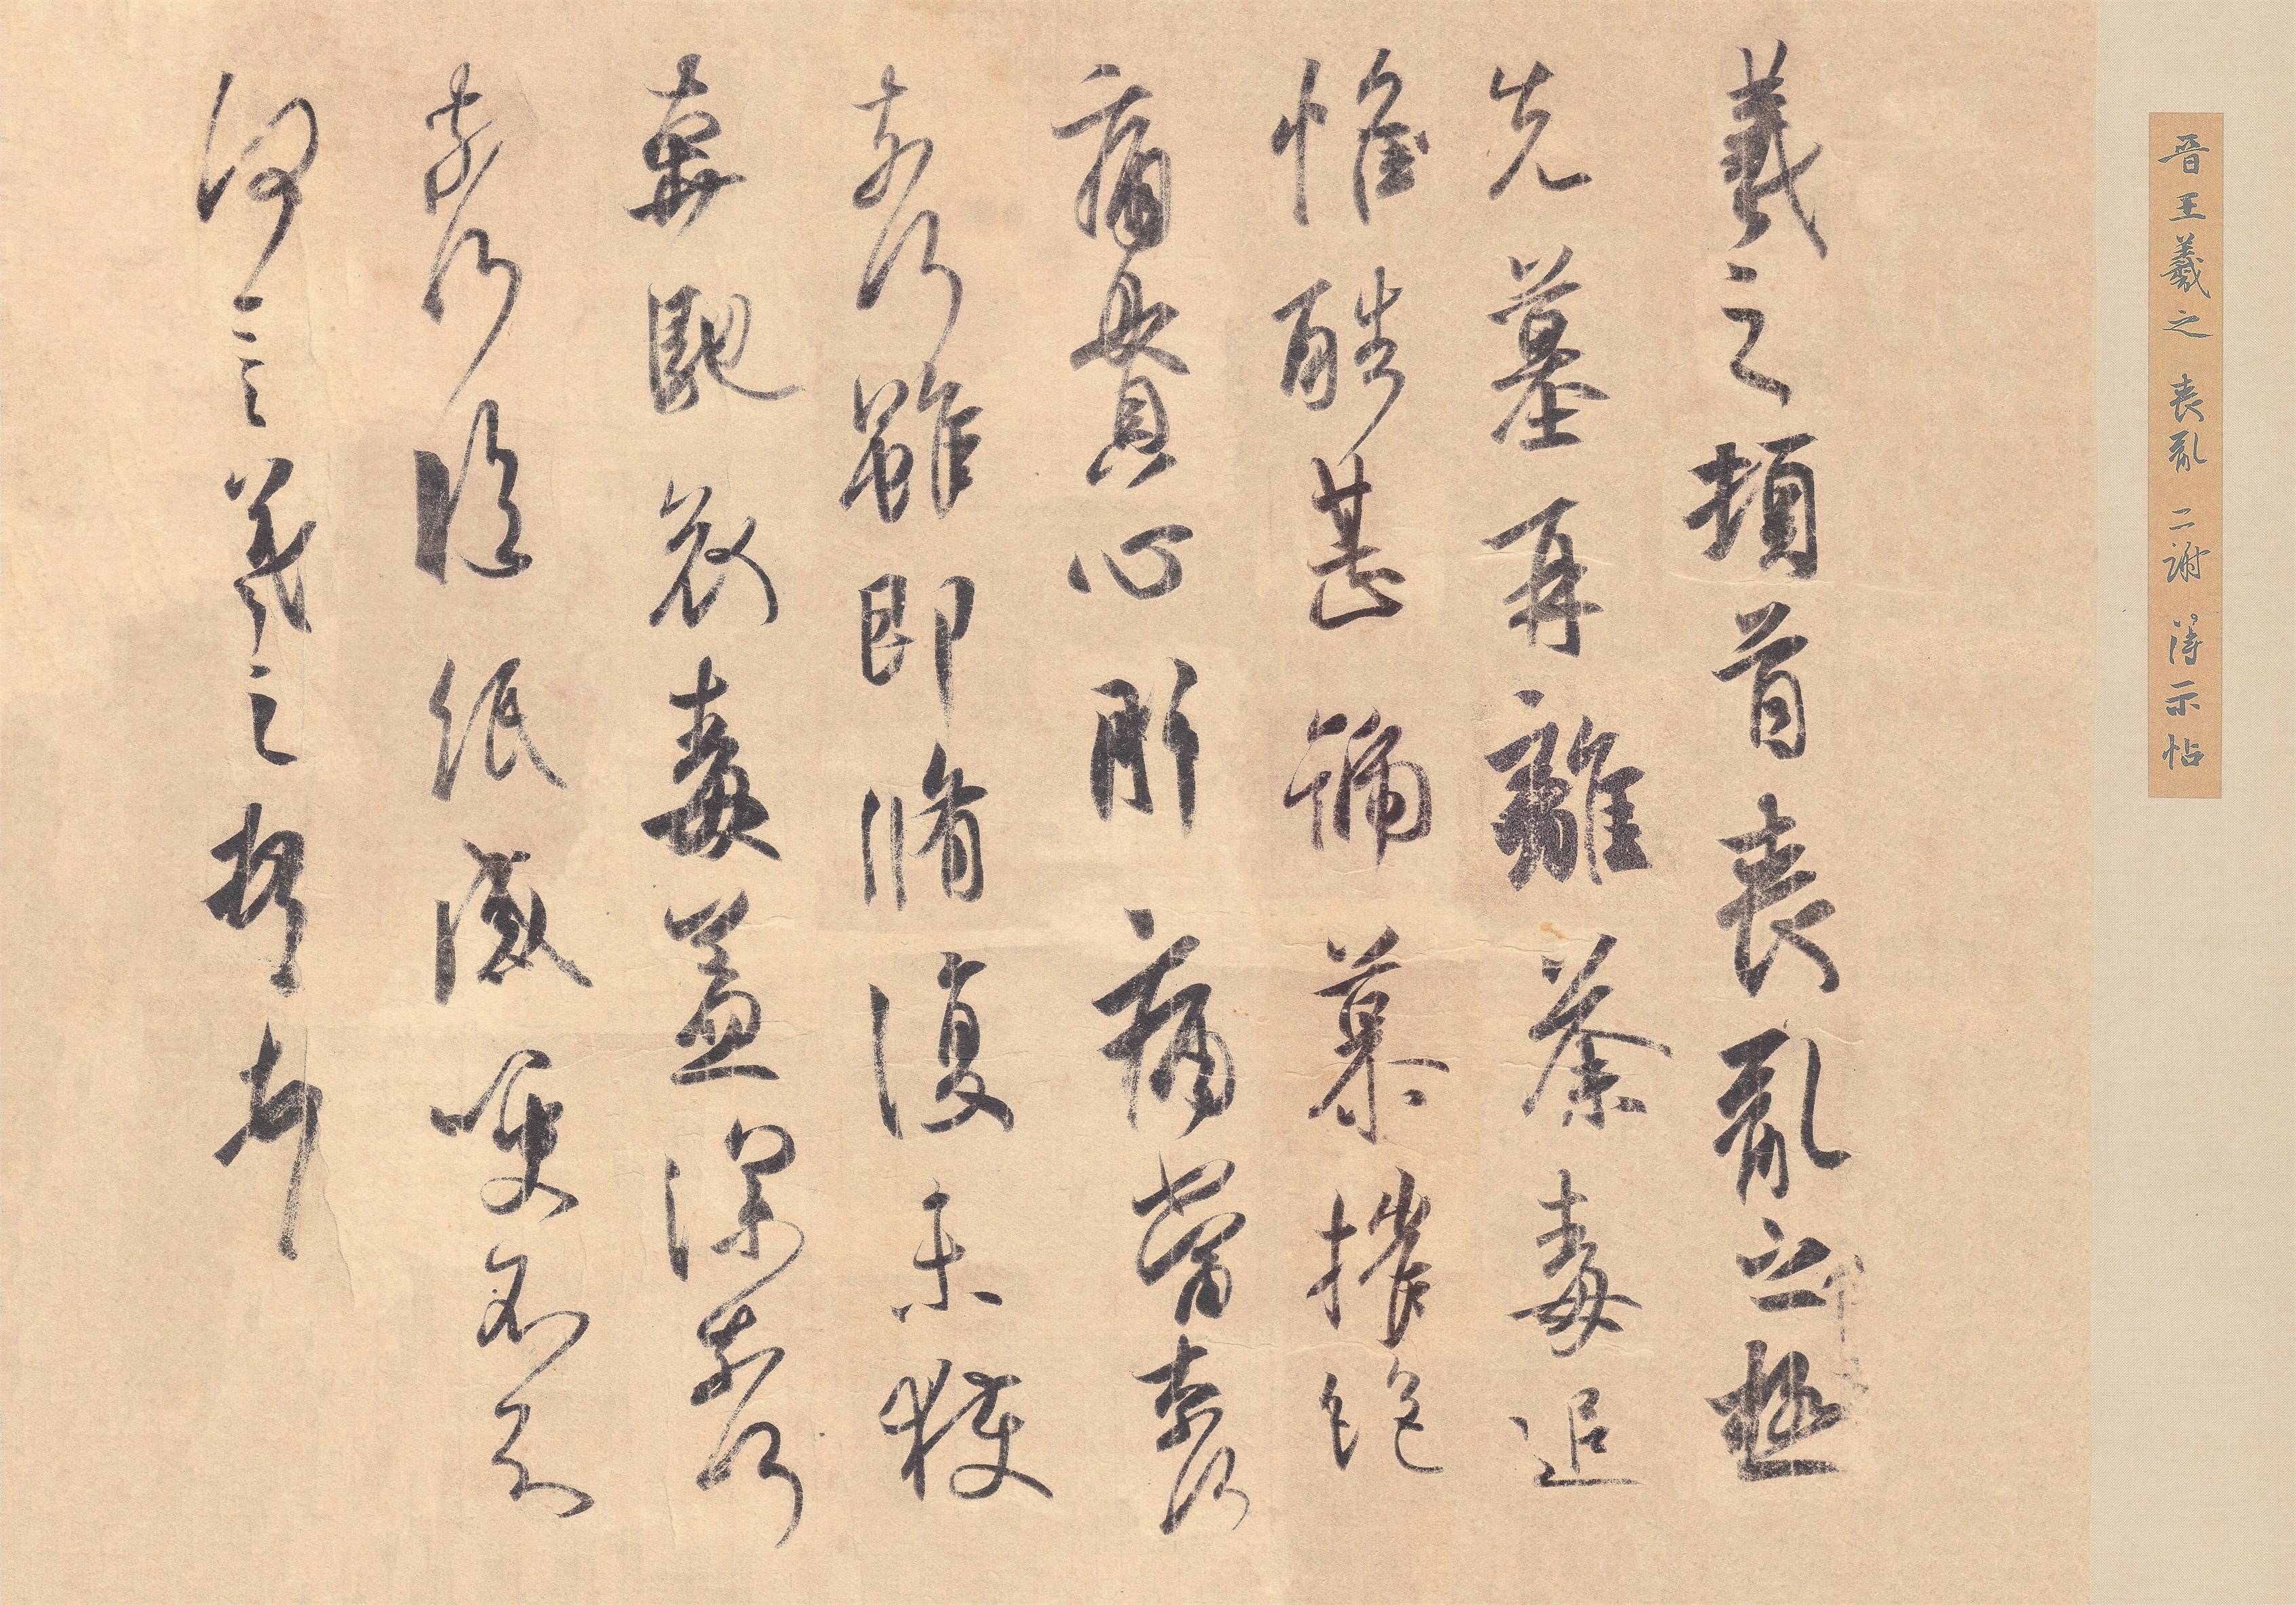 晉王羲之 喪亂 二謝 得示帖
羲之頓首喪亂之極
先墓再離荼毒追
惟酷甚號慕摧絕
痛貫心肝痛當奈何
奈何雖即脩復未獲
奔馳哀毒益深奈何
奈何臨紙感哽不知
何言羲之頓首